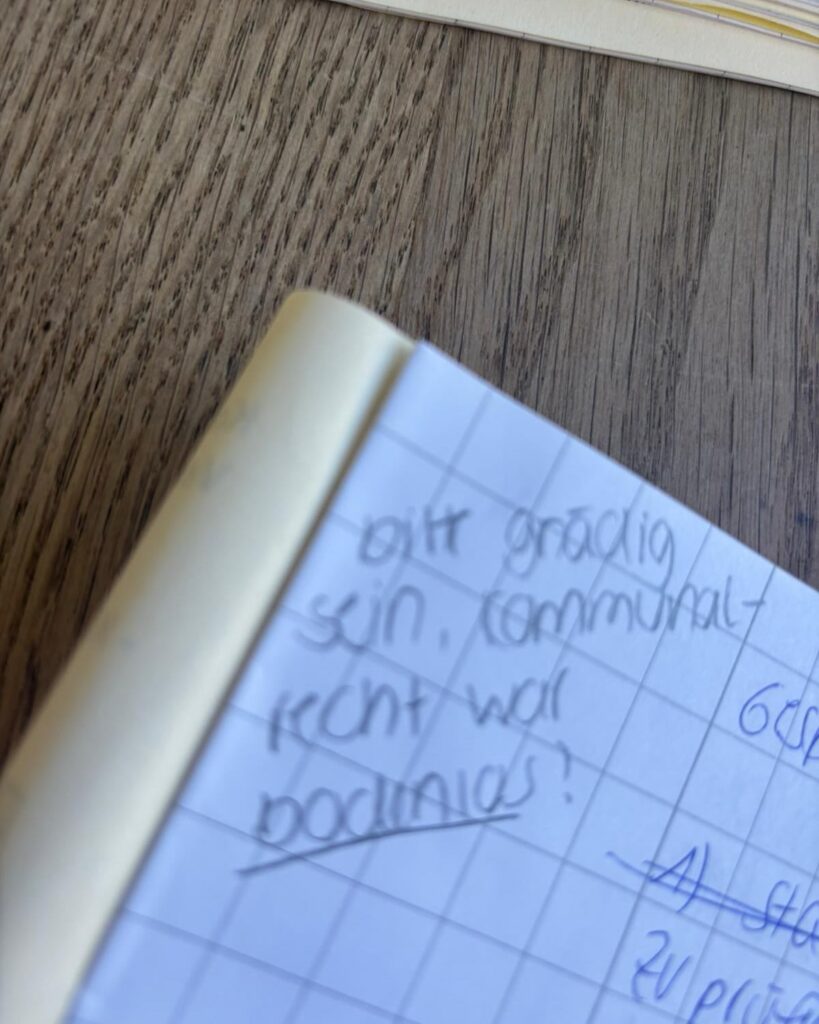 bitt gnädig
sein, communal-
recht war
bodenlos!
1) sta
zu prüfe